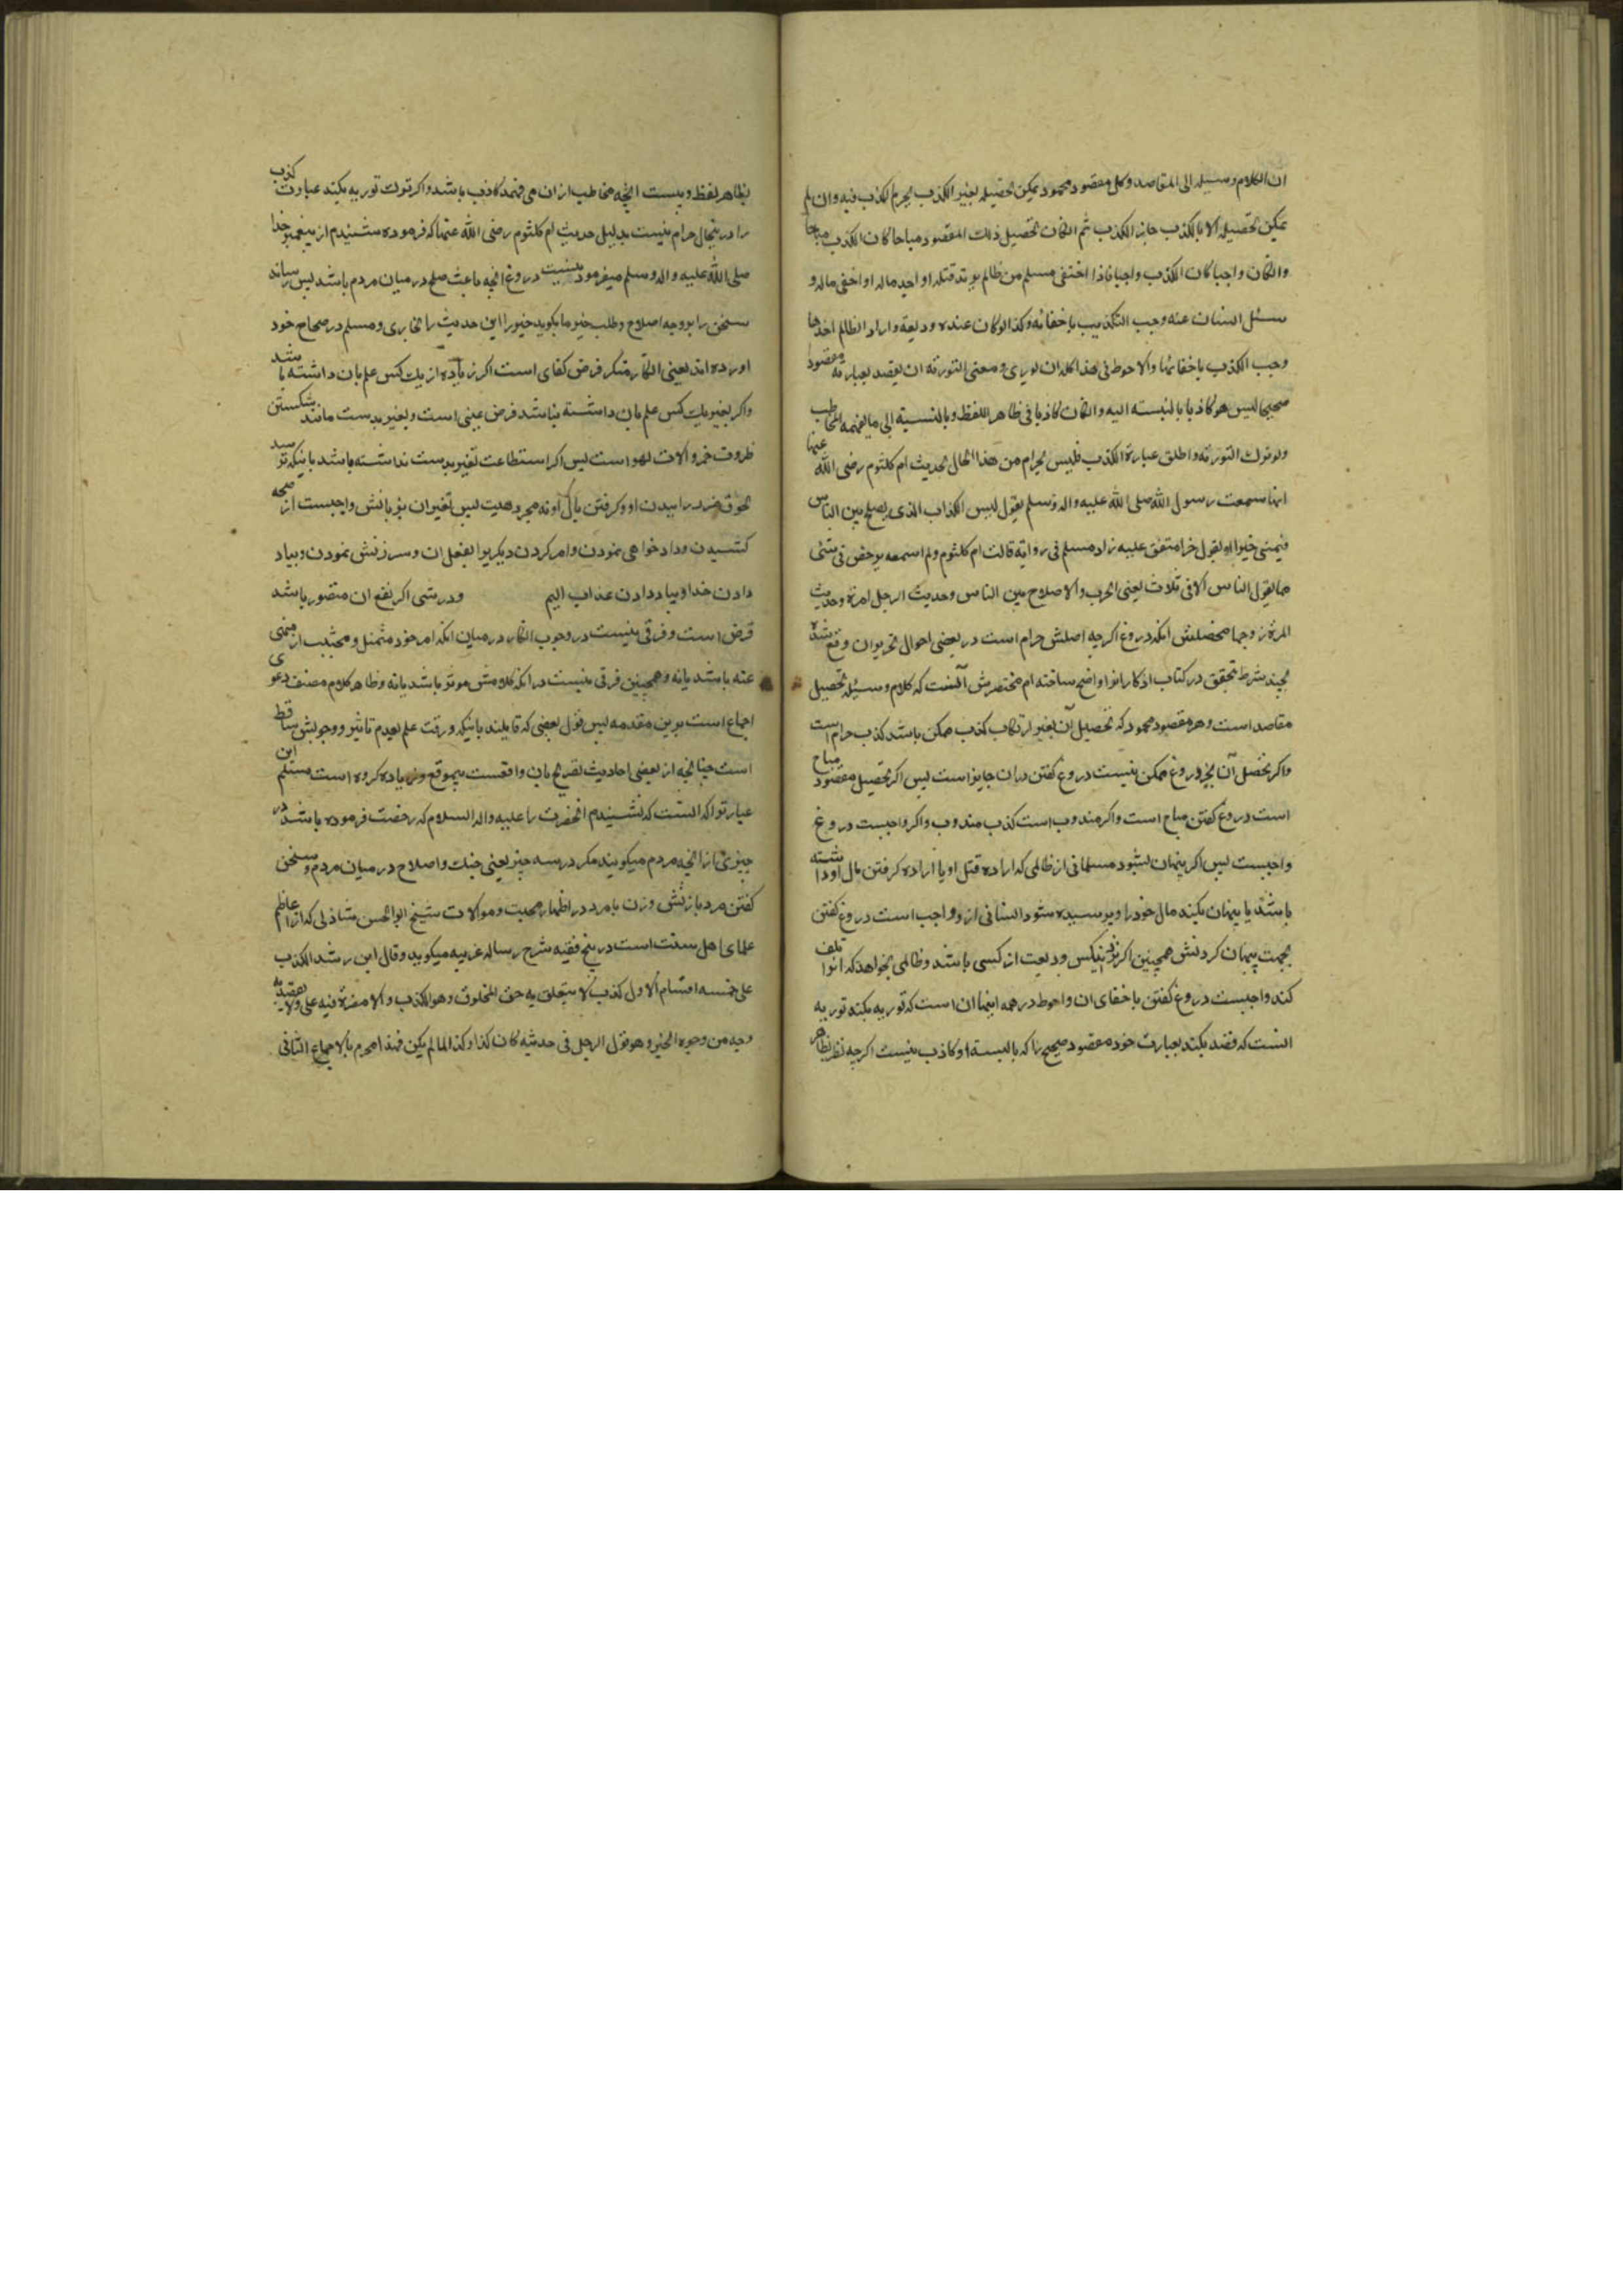 ان الکلام وسیله الی المقاصد وکل مقصود محمود یمکن تحصیله بغیر الکذب یحرم الکذب فیه وان لم
یمکن تحصیله الا بالکذب جاز الکذب ثم انکان تحصیل ذلک المقصود مباحا کان الکذب مباحا
وانکان واجبا کان الکذب واجبا فاذا اختفی مسلم من ظالم یرید قتله او اخذ ماله او اخفی ماله و
سئل انسان عنه وجب التکذیب باخفائه وکذا لوکان عنده ودیعة واراد الظالم اخذها
وجب الکذب باخفائها والاحوط فی هذا کله ان یوری ومعنی التوریة ان یقصد بعبارته مقصود
صحیحا لیس هو کاذبا بالنسبته الیه وانکان کاذبا فی ظاهر اللفظ وبالنسبة الی ما یفهمه المخاطب
ولو ترک التوریة واطلق عبارة الکذب فلیس بحرام من هذا الحال لحدیث ام کلثوم رضی الله عنها
انها سمعت رسول الله صلی الله علیه واله وسلم یقول لیس الکذاب الذی یصلح بین الناس
فینمی خیرا او یقول خیرا متفق علیه زاد مسلم فی روایة قالت ام کلثوم ولم اسمعه یرخص فی شئی
مما یقول الناس الا فی ثلاث یعنی الحرب والاصلاح بین الناس وحدیث الرجل امرئة وحدیث
المرئة زوجها محصلش انکه دروغ اکرچه اصلش حرام است در بعضی احوال تجویز ان وقع شده
بچند شرط تحقق در کتاب اذکار انرا واضح ساخته ام مختصرش آنست که کلام وسیله تحصیل
مقاصد است وهر مقصود محمود که تحصیل آن بغیر ارتکاب کذب ممکن باشد کذب حرام است
واکر تحصل آن بجز دروغ ممکن نیست دروغ کفتن دران جایز است پس اکر تحصیل مقصود مباح
است دروغ کفتن مباح است واکر مندوب است کذب مندوب واکر واجبست دروغ
واجبست پس اکر پنهان بشود مسلمانی از ظالمی که اراده قتل او یا اراده کرفتن مال او داشته
باشد یا پنهان بکند مال خود را و پرسیده شود انسانی ازو واجب است دروغ کفتن
بجهت پنهان کردنش همچنین اکر نزد نیکس ودیعت از کسی باشد وظالمی بخواهد که انرا تلف
کند واجبست دروغ کفتن باخفای ان واحوط در همه اینها ان است که توریه بکند توریه
انست که قصد بکند بعبارت خود مقصود صحیح را که بالنسبه او کاذب نیست اکرچه نظر بظاهر
بظاهر لفظ و نیست انچه مخاطب ازان می فهمد کاذب باشد واکر ترک توریه بکند عبارت کذب
را درینحال حرام نیست بدلیل حدیث ام کلثوم رضی الله عنها که فرموده شنیدم از پیغمبر خدا
صلی الله علیه واله وسلم میفرمود نیست دروغ انچه باعث صلح درمیان مردم باشد پس رساند
سخن را بروجه اصلاح وطلب خیر ما بکوید خیر را این حدیث را بخاری ومسلم در صحاح خود
اورده اند یعنی انکار منکر فرض کفای است اکر زیاده از یک کس علم بان داشته باشد
واکر بغیر یک کس علم بان داشته نباشد فرض عینی است وتغیر بدست مانند شکستن
ظروف خمر والات لهو است پس اکر استطاعت تغیر بدست نداشته باشد باینکه ترسد
لحوق ضرر را ببدن او وکرفتن مال او نه مجرد هیبت پس تغیر ان بزبانش واجبست از صحه
کشیدن وداد خواهی نمودن وامر کردن دیکریرا بفعل ان وسرزنش نمودن وبیاد
دادن خدا وبیاد دادن عذاب الیم ودرشتی اکر نفع ان متصور باشد
فرض است وفرقی نیست در وجوب انکار درمیان انکه امر خود متمثل ومجتنب از منهی
عنه باشد یا نه وهمچنین فرقی نیست در انکه کلامش موثر باشد یا نه وظاهر کلام مصنف دعوی
اجماع است برین مقدمه پس قول بعضی که قایلند باینکه وقت علم بعدم تاثیر وجوبش ساقط
است چنانچه از بعضی احادیث تصریح بان واقعست بیموقع وزیاده کرده است مسلم این
عبارتوا که انست که نشنیدم انحضرت را علیه واله السلام که رخصت فرموده باشد در
چیزی از انچه مردم میکویند مکر در سه چیز یعنی جنک واصلاح درمیان مردم وسخن
کفتن مرد با زنش وزن با مرد در اظهار محبت وموالات شیخ ابوالحسن شاذلی که از اعاظم
علمای اهل سنت است در پنج فقیه شرح رساله غربیه میکوید وقال ابن رشد الکذب
علی خمسه اقسام الاول کذب لا یتعلق به حق المخلوق وهو الکذب والا مضرة فیه علی ولا یقصد به
وجه من وجوه الخیر وهو قول الرجل فی حدیثه کان کذا وکذا لما لم یکن فهذا محرم بالاجماع الثانی